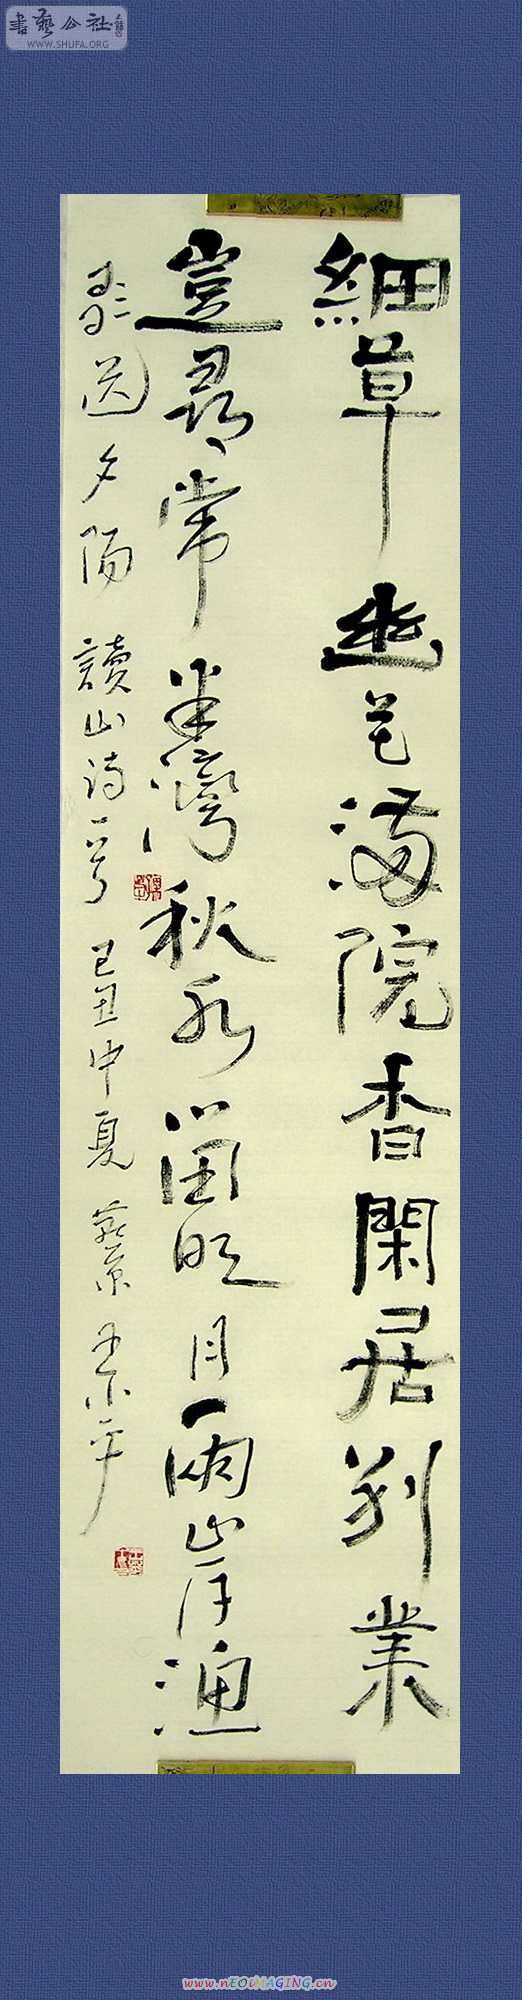 書藝公社
WWW.SHUFA.ORG
細草幽花滿院香閑居別業
豈尋常半灣秋水留明月兩岸漁
歌送夕陽 讀山诗一首 己丑中夏
www.nEOiMAGING.cn